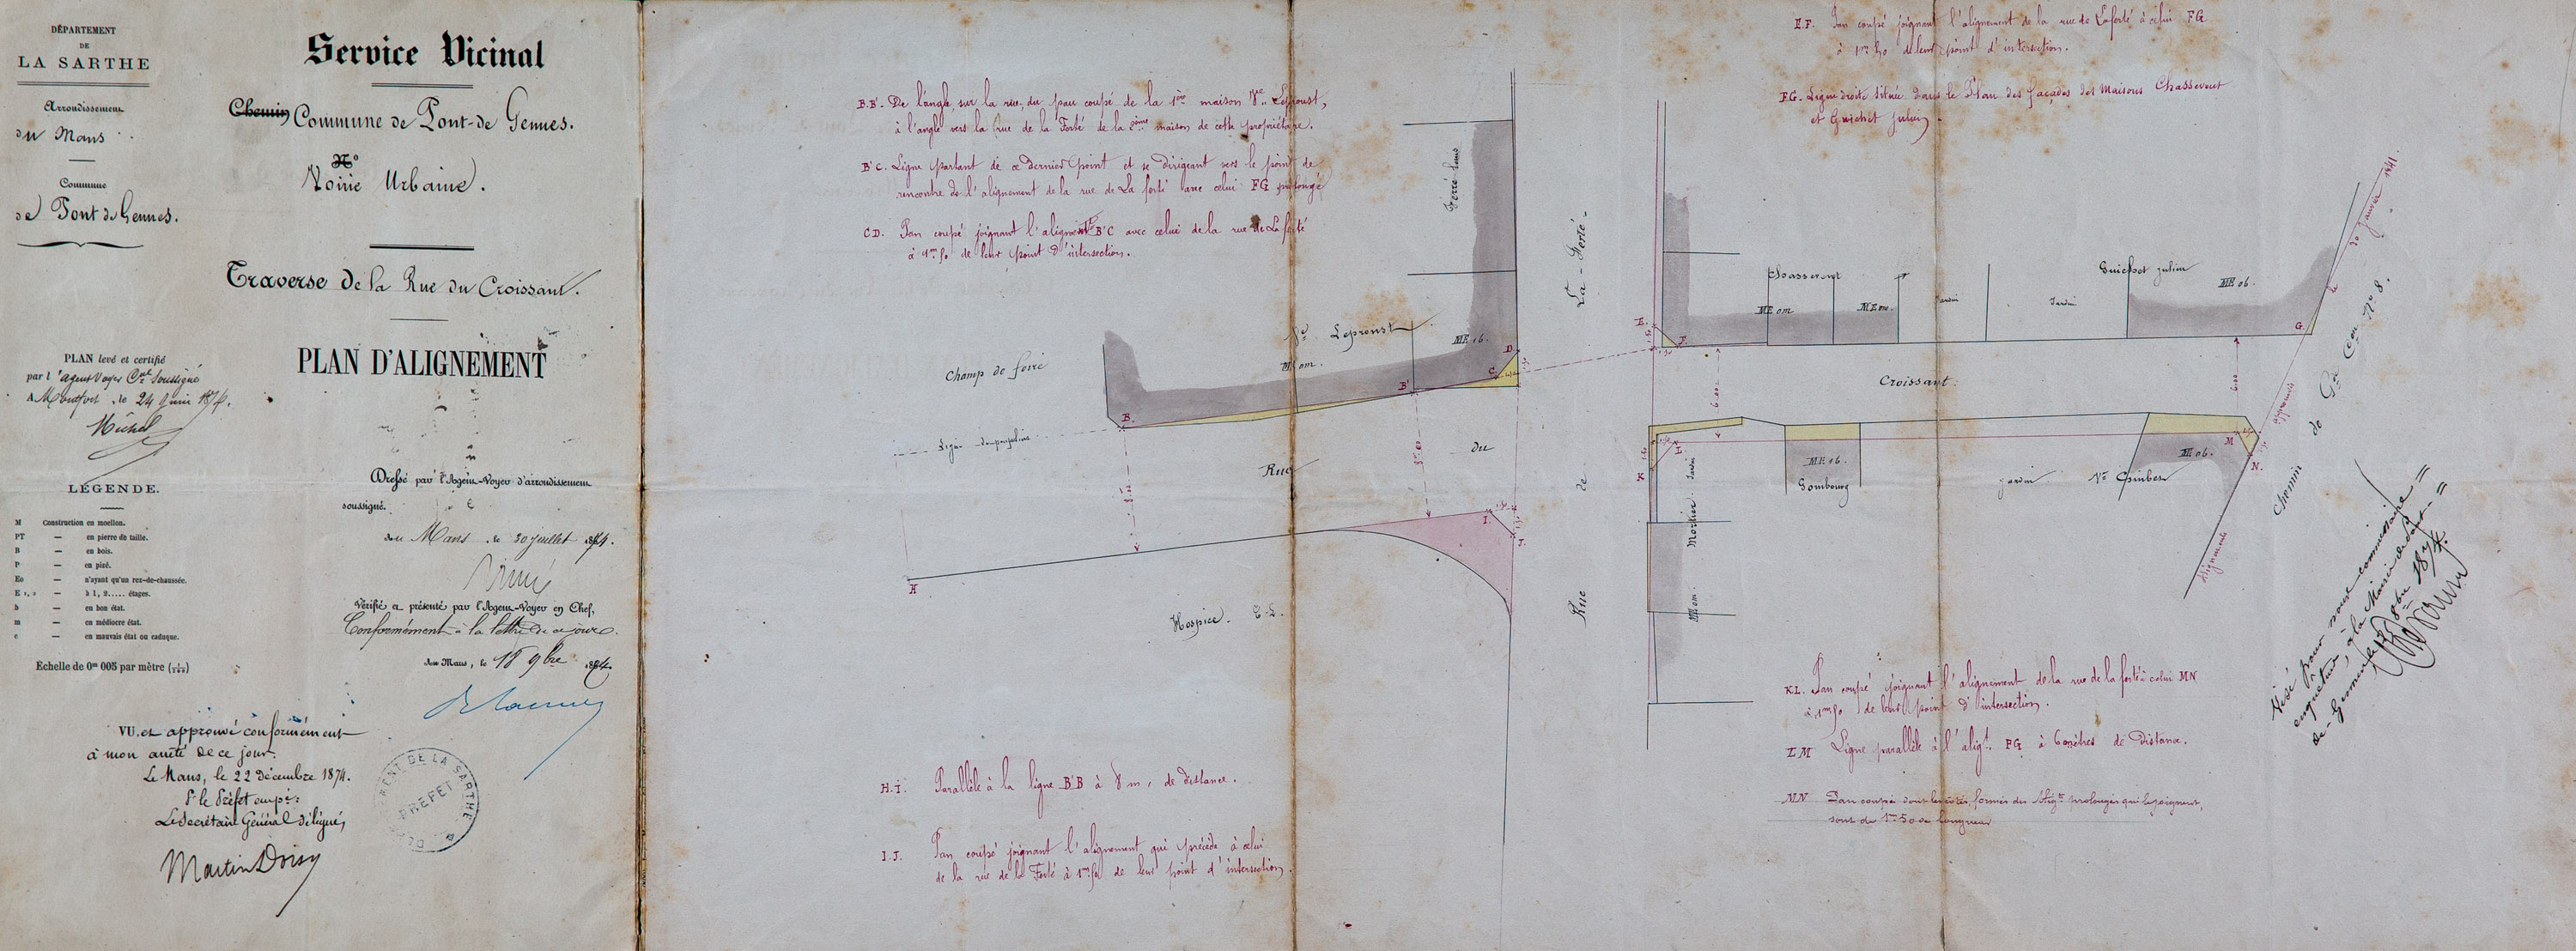 DÉPARTEMENT
DE
LA SARTHE
Arrondissement
du Mans
Commune
de Pont de Gennes.
PLAN levé et certifié
par l'agent Voyer Cnal Soussigné
A Montfort, le 24 Juin 1874.
Michel
LÉGENDE.
M Construction en moellon.
PT — en pierre de taille.
B — en bois.
P — en pizé.
Eo — n'ayant qu'un rez-de-chaussée.
E 1, 2 — à 1, 2..... étages.
b — en bon état.
m — en médiocre état.
c — en mauvais état ou caduque.
Echelle de 0m 005 par mètre (1/200)
VU et approuvé conformément
à mon arrêté de ce jour.
Le Mans, le 22 Décembre 1874.
Pr le Préfet empê:
Le Secrétaire Général délégué,
Martin Doisy
Service Vicinal
Chemin Commune de Pont-de Gennes.
No
Voirie Urbaine.
Traverse de la Rue du Croissant.
PLAN D'ALIGNEMENT
Dressé par l'Agent-Voyer d'arrondissement
soussigné.
au Mans, le 30 juillet 1874.
Vérifié et présenté par l'Agent-Voyer en Chef,
Conformément à la lettre de ce jour.
au Mans, le 18 9bre 1874.
DÉPARTEMENT DE LA SARTHE
PREFET
B.B'. De l'angle, sur la rue, du pan coupé de la 1ère maison Ve Leproust,
à l'angle vers la Rue de la Ferté de la 2ème maison de cette propriétaire.
B'C. Ligne partant de ce dernier point et se dirigeant vers le point de
rencontre de l'alignement de la rue de La ferté avec celui FG prolongé
CD. Pan coupé joignant l'alignemt B'C avec celui de la rue de La ferté
à 1m50 de leur point d'intersection.
E.F. Pan coupé joignant l'alignement de la rue de Laferté à celui FG
à 1m50 de leur point d'intersection.
FG. Ligne droite située dans le Plan des façades des Maisons Chassevent
et Guichet julien
Champ de foire
Ve Leproust
ME om.
ME 1b.
B.
B'
C.
D.
Rue
du
Croissant
La - Ferté -
de
Rue
E.
F.
Chassevent
ME om
ME om.
Jardin
Jardin
Guichet julien
ME ob.
G.
6.00
6.00
Chemin de Gde Con No 8.
H
I.
J.
Hospice
K
Mortier Jardin
M om.
ME 1b.
Gombourg
jardin
Ve
M ob.
M
N.
H.I. Parallèle à la ligne B'B à 8 m, de distance.
I.J. Pan coupé joignant l'alignement qui précède à celui
de la rue de la Ferté à 1m50 de leur point d'intersection.
KL. Pan coupé joignant l'alignement de la rue de la ferté à celui MN
à 1m50 de leur point d'intersection.
LM Ligne parallèle à l'aligt FG à 6 mètres de Distance.
MN Pan coupé dont les côtés, formés des aligts prolongés qui le joignent,
sont de 1m50 de longueur
Visé pour nous commissaire
enquêteur, à la Mairie de Pont-
de-Gennes le 18 8bre 1874.